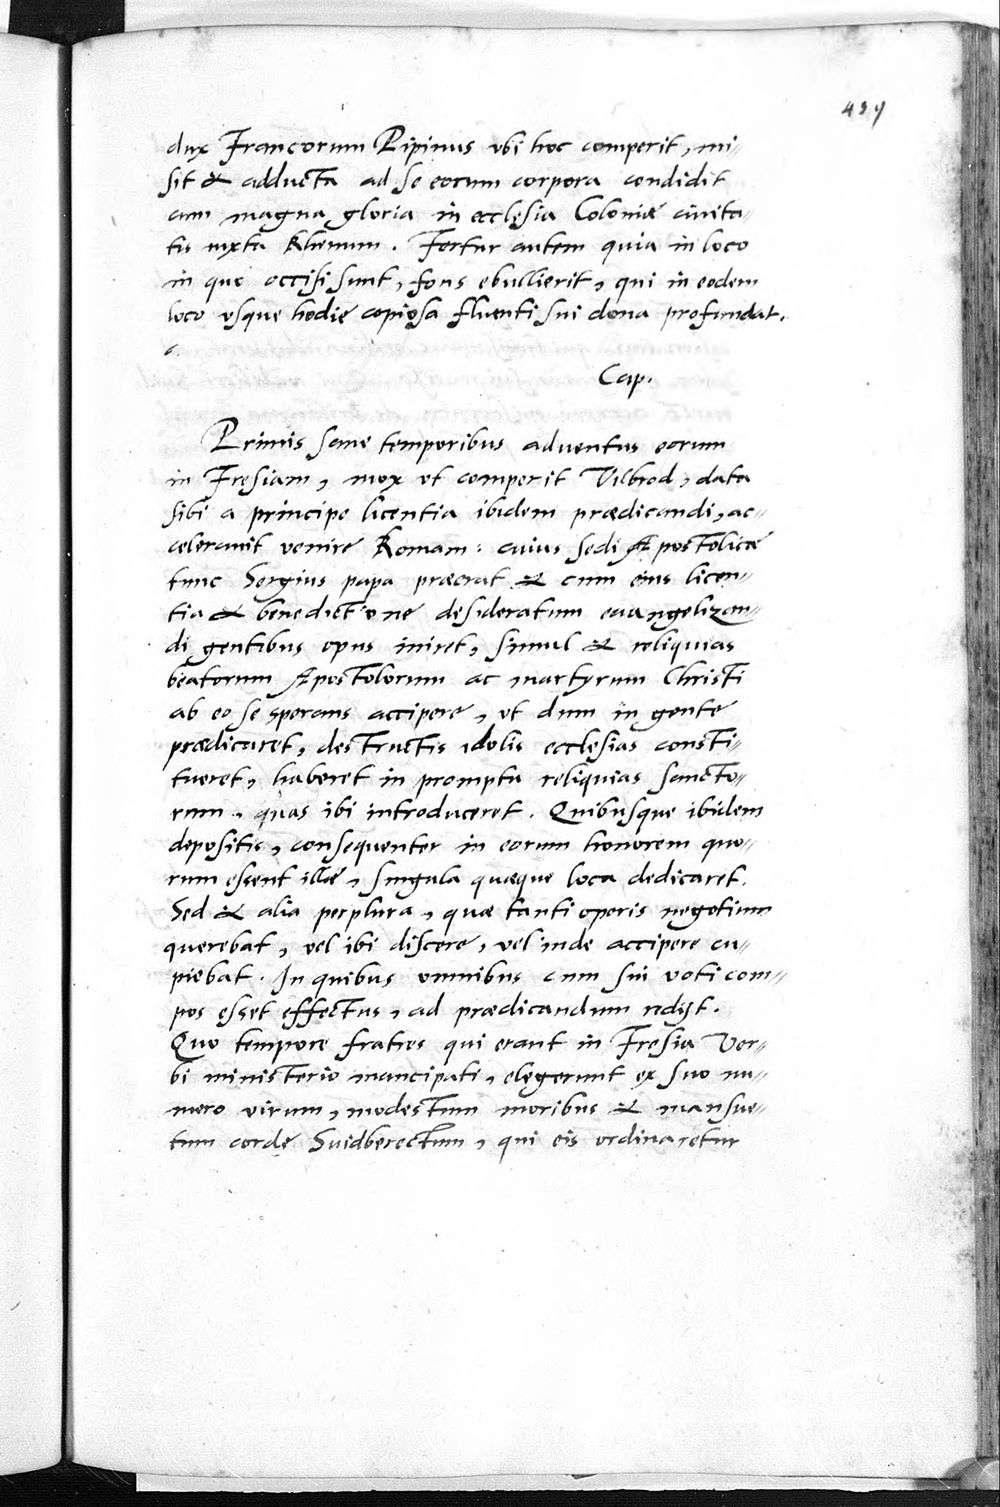 dux Francorum Pipinus vbi hoc comperit, mi-
sit & adducta ad se eorum corpora condidit
cum magna gloria in ecclesia Coloniæ ciuita-
tis iuxta Rhenum. Fertur autem quia in loco
in quo occisi sunt, fons ebullierit, qui in eodem
loco vsque hodie copiosa fluenti sui dona profundat.
Cap.
Primis sane temporibus aduentus eorum
in Fresiam, mox vt comperit Vilbrod, data
sibi a principe licentia ibidem prædicandi, ac-
celerauit venire Romam: cuius sedi Apostolicæ
tunc Sergius papa præerat & cum eius licen-
tia & benedictione desideratum euangelizan-
di gentibus opus iniret, simul & reliquias
beatorum Apostolorum ac martyrum Christi
ab eo se sperans accipere, vt dum in gente
prædicaret, destructis idolis ecclesias consti-
tueret, haberet in promptu reliquias sancto-
rum, quas ibi introduceret. Quibusque ibidem
depositis, consequenter in eorum honorem quo-
rum essent illæ, singula quæque loca dedicaret.
Sed & alia perplura, quæ tanti operis negotium
querebat, vel ibi discere, vel inde accipere cu-
piebat. In quibus omnibus cum sui voti com-
pos esset effectus, ad prædicandum redijt.
Quo tempore fratres qui erant in Fresia Ver-
bi ministerio mancipati, elegerunt ex suo nu-
mero virum, modestum moribus & mansue-
tum corde Suidberectum, qui eis ordinaretur